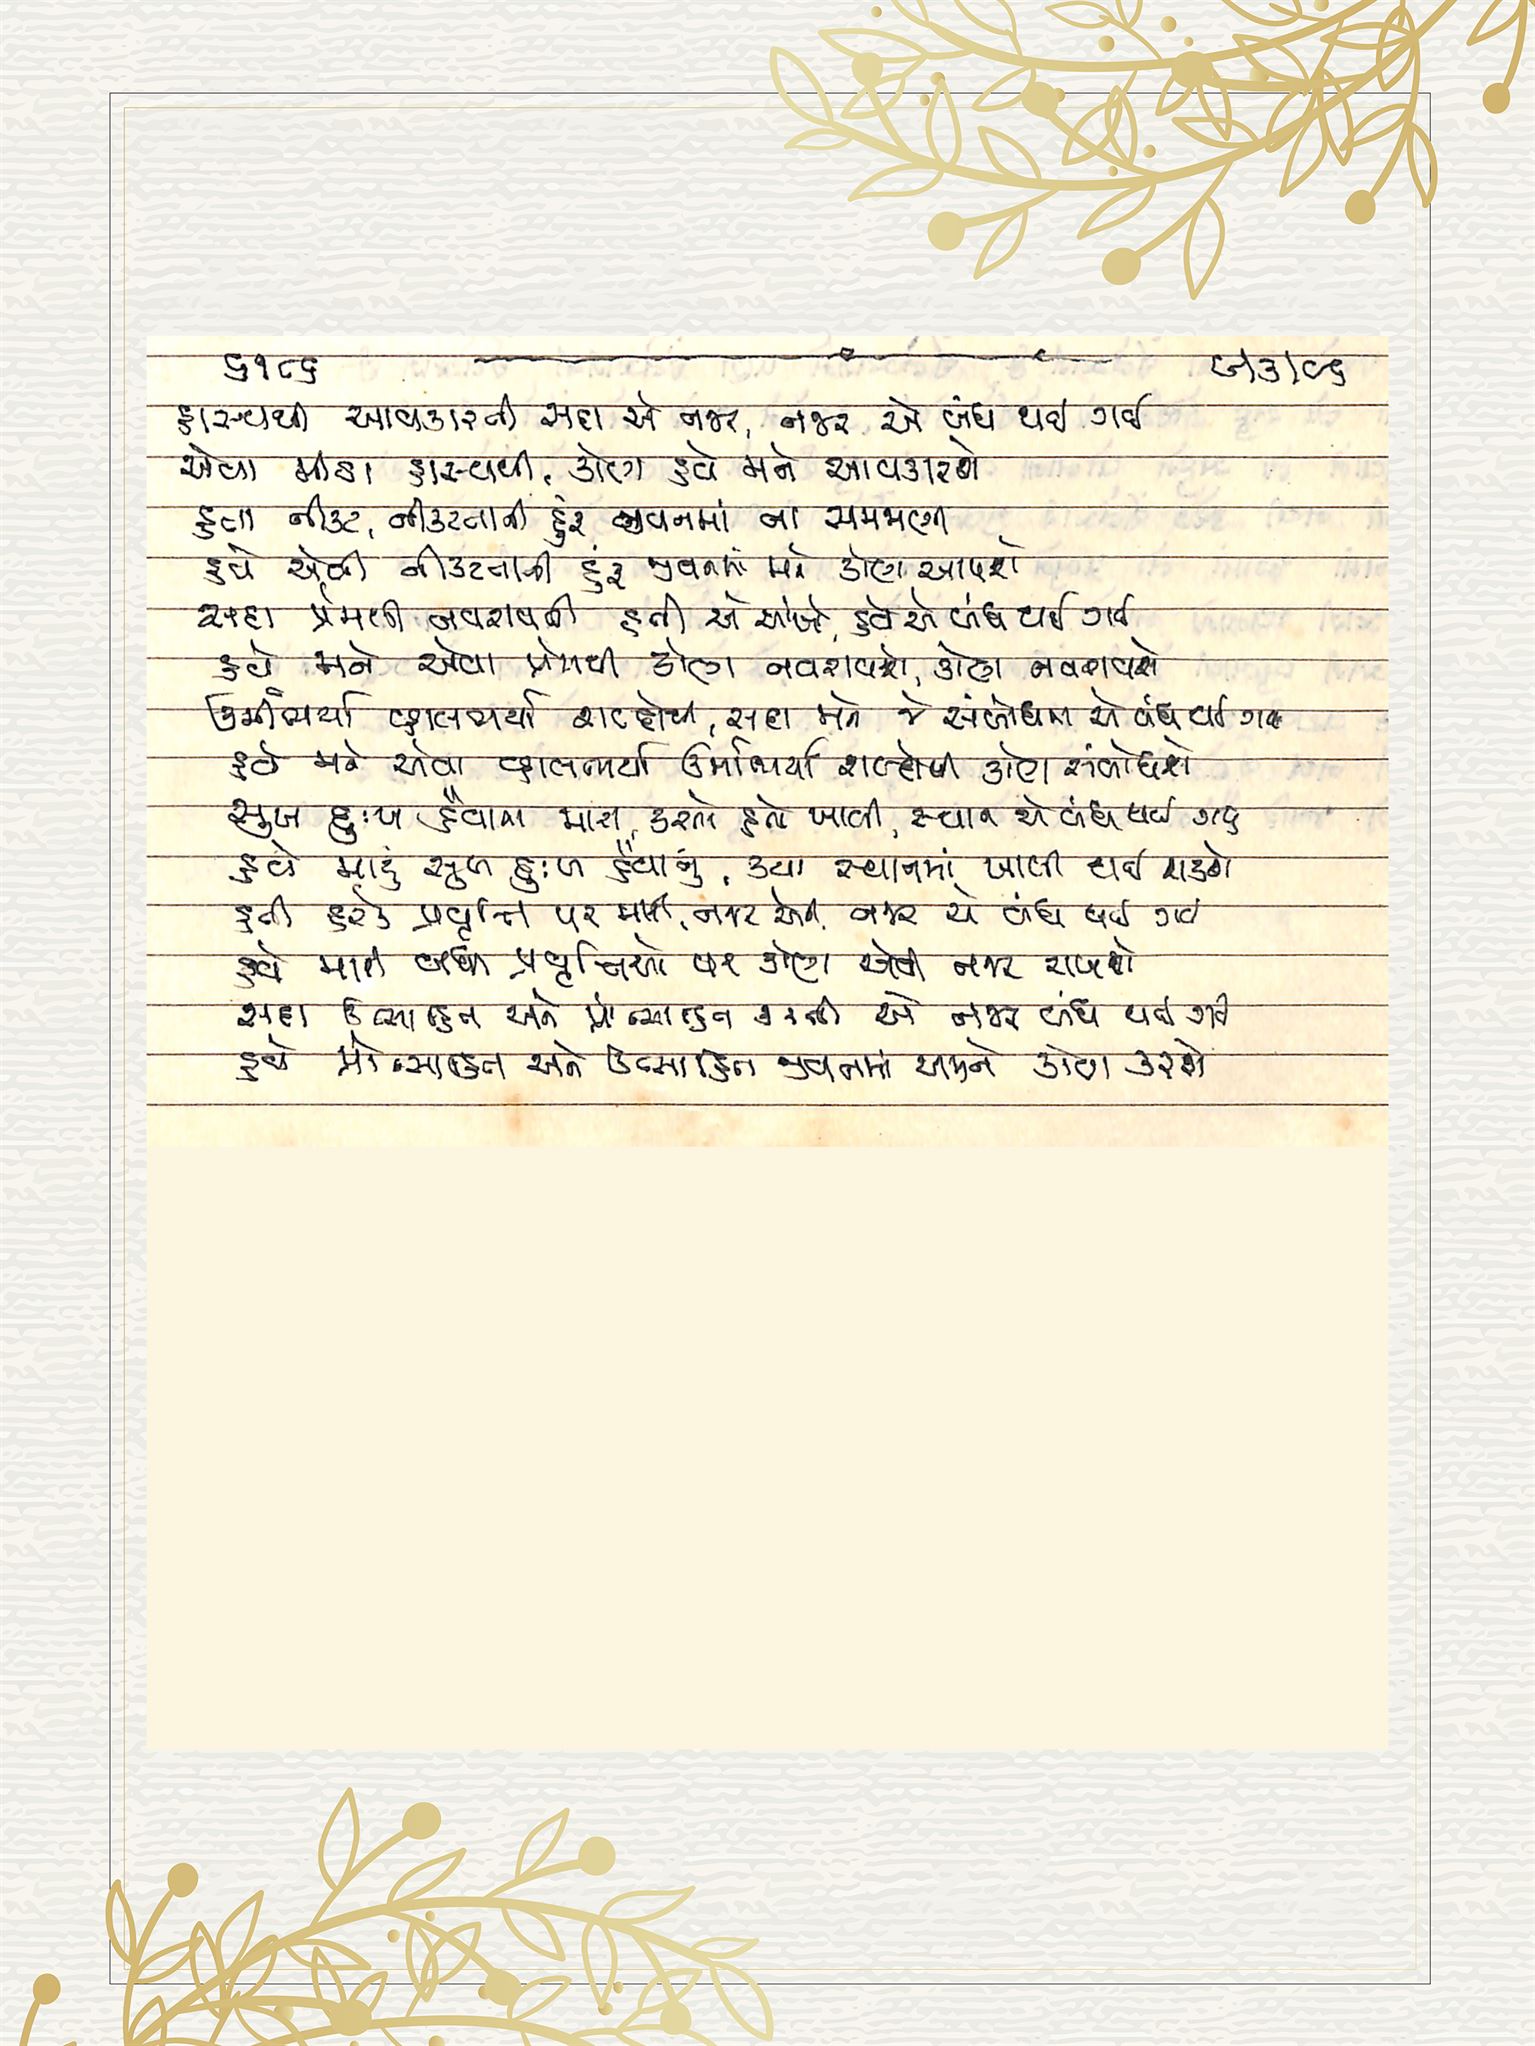 ૬૧૮૬ ૯/૩/૯૬
હાસ્યથી આવકારની સદા એ નજર, નજર એ બંધ થઈ ગઈ
એવા મીઠા હાસ્યથી, કોણ હવે મને આવકારશે
હતા નીકટ, નીકટતાની હુંફ જીવનમાં ના સમજાણી
હવે એવી નીકટતાની હુંફ જીવનમાં મને કોણ આપશે
સદા પ્રેમથી નવરાવતી હતી એ આંખો, હવે એ બંધ થઈ ગઈ
હવે મને એવા પ્રેમથી કોણ નવરાવશે, કોણ નવરાવશે
ઉર્મીભર્યા વ્હાલભર્યા શબ્દોથી, સદા મને જે સંબોધન એ બંધ થઈ ગયા
હવે મને એવા વ્હાલભર્યા ઉર્મિભર્યા શબ્દોથી કોણ સંબોધશે
સુખ દુઃખ હૈયાના મારા, કરતો હતો ખાલી, સ્થાન એ બંધ થઈ ગયું
હવે મારું સુખ દુઃખ હૈયાનું, કયા સ્થાનમાં ખાલી થઈ શકશે
હતી દરેક પ્રવૃત્તિ પર મારી, નજર એની, નજર એ બંધ થઈ ગઈ
હવે મારી બધી પ્રવૃત્તિઓ પર કોણ એવી નજર રાખશે
સદા ઉત્સાહિત અને પ્રોત્સાહન કરતી એ નજર બંધ થઈ ગઈ
હવે પ્રોત્સાહિત અને ઉત્સાહિત જીવનમાં અમને કોણ કરશે